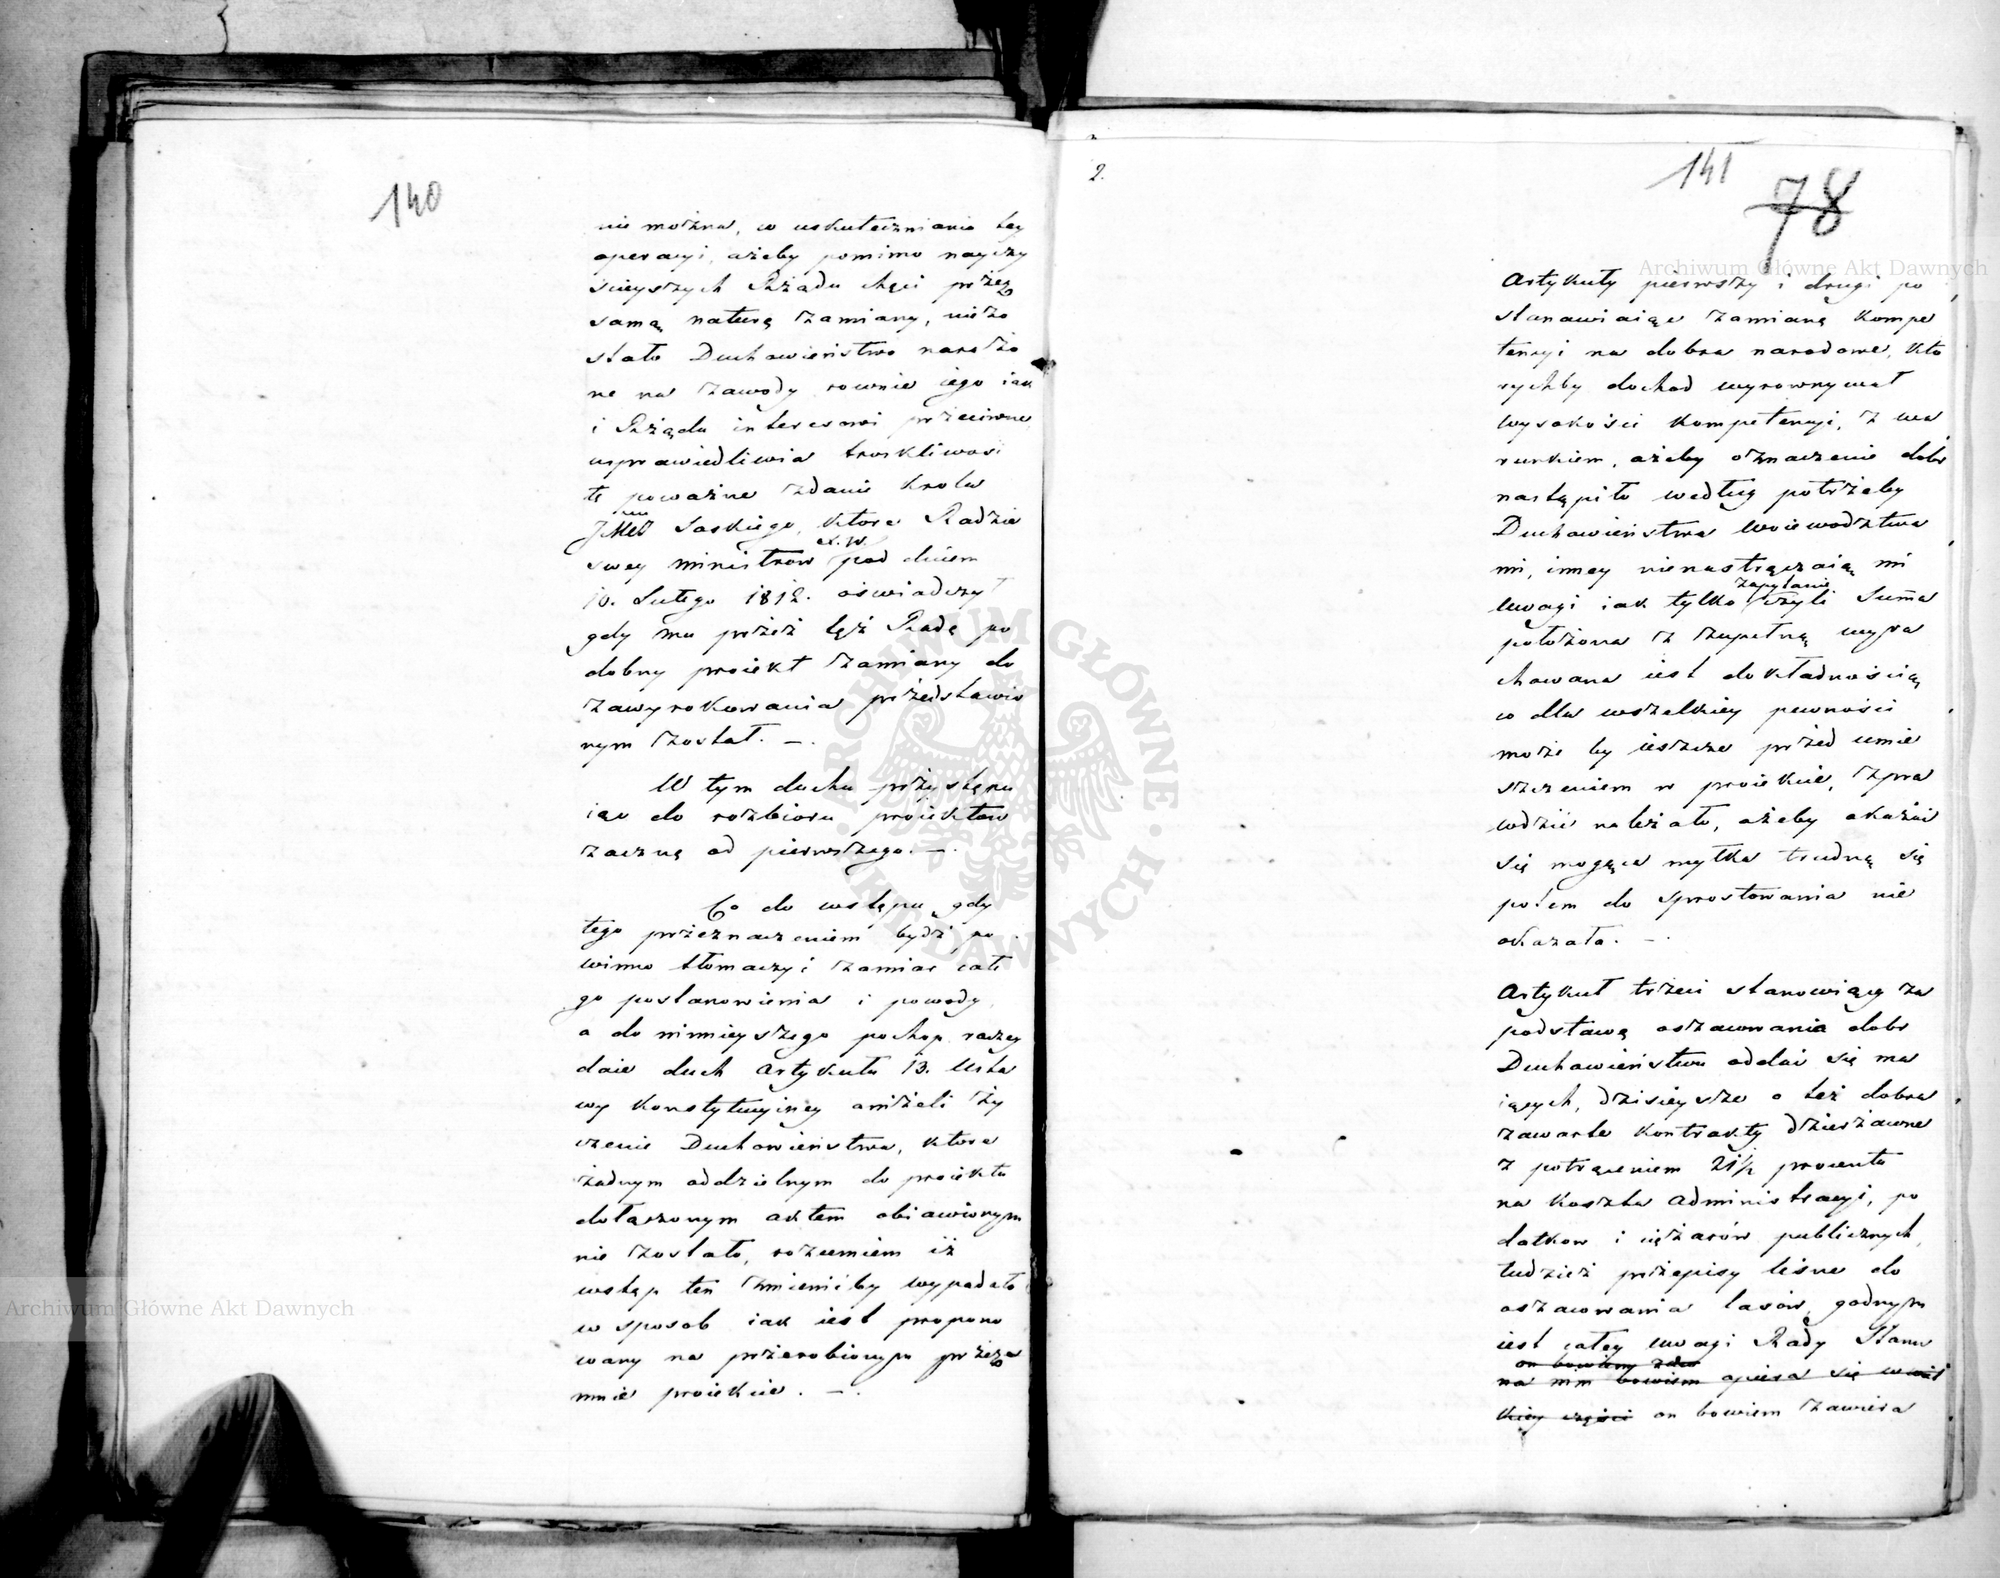 140
nie można, w uskutecznianiu tey
operacyi, ażeby pomimo nayczy
ścieyszych Rządu chęci przez
samą naturę zamiany, niezo
stało Duchowieństwo narażo
ne na zawody rownie iego iak
i Rządu interesowi przeciwne
usprawiedliwia troskliwość
tę poważne zdanie Krola
JMci Saskiego, ktore Radzie
swey ministrow x. W. pod dniem
10. Lutego 1812. oświadczył
gdy mu przez tęż Radę po
dobny proiekt zamiany do
zawyrokowania przedstawio
nym został. —.
W tym duchu przystępu
iąc do rozbioru proiektow
zacznę od pierwszego. —.
Co do wstępu, gdy
tego przeznaczeniem bydź po
winno tłomaczyć zamiar całe
go postanowienia i powody,
a do ninieyszego pochop raczey
daie duch Artykułu 13. Usta
wy Konstytucyiney aniżeli ży
czenie Duchowieństwa, ktore
żadnym oddzielnym do proiektu
dołączonym aktem obiawionym
nie zostało, rozumiem iż
wstęp ten zmienić by wypadało
w sposob iak iest propono
wany na przerobionym przeze
mnie proiekcie. —.
2.
141
78
Artykuły pierwszy i drugi po
stanawiaiące zamianę kompe
tencyi na dobra narodowe, kto
rychby dochod wyrownywał
wysokości kompetencyi, z wa
runkiem, ażeby oznaczenie dobr
nastąpiło według potrzeby
Duchowieństwa Woiewodztwa
mi, inney nienastręczaią mi
uwagi iak tylko zapytanie czyli Summa
położona z zupełną wyra
chowana iest dokładnością,
co dla wszelkiey pewności
może by ieszcze przed umie
szczeniem w proiekcie, spra
wdzić należało, ażeby okazać
się mogąca myłka trudną się
potem do sprostowania nie
okazała. —.
Artykuł trzeci stanowiący za
podstawę oszacowania dobr
Duchowieństwu oddać się ma
iących, dzisieysze o też dobra
zawarte kontrakty dzierżawne
z potrąceniem 21/2 procentu
na koszta administracyi, po
datkow i ciężarów publicznych,
tudzież przepisy leśne do
oszacowania lasów, godnym
iest całey uwagi Rady Stanu
on bowiem
na nim bowiem opiera się w wiel
kiey części on bowiem zawiera
Archiwum Główne Akt Dawnych
Archiwum Główne Akt Dawnych
ARCHIWUM GŁÓWNE · AKT DAWNYCH ·